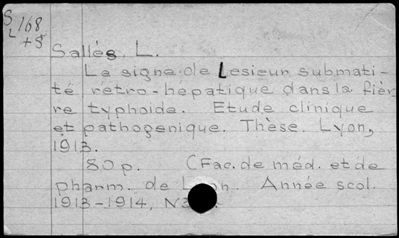 S 168
L +S
Sallès, L.
Le signe de Lesieur submati-
té rétro-hépatique dans la fièv-
re typhoide. Etude clinique
et pathogenique. Thèse. Lyon,
1913.
80 p. (Fac. de méd. et de
pharm. de Lyon. Année scol.
1913-1914, N